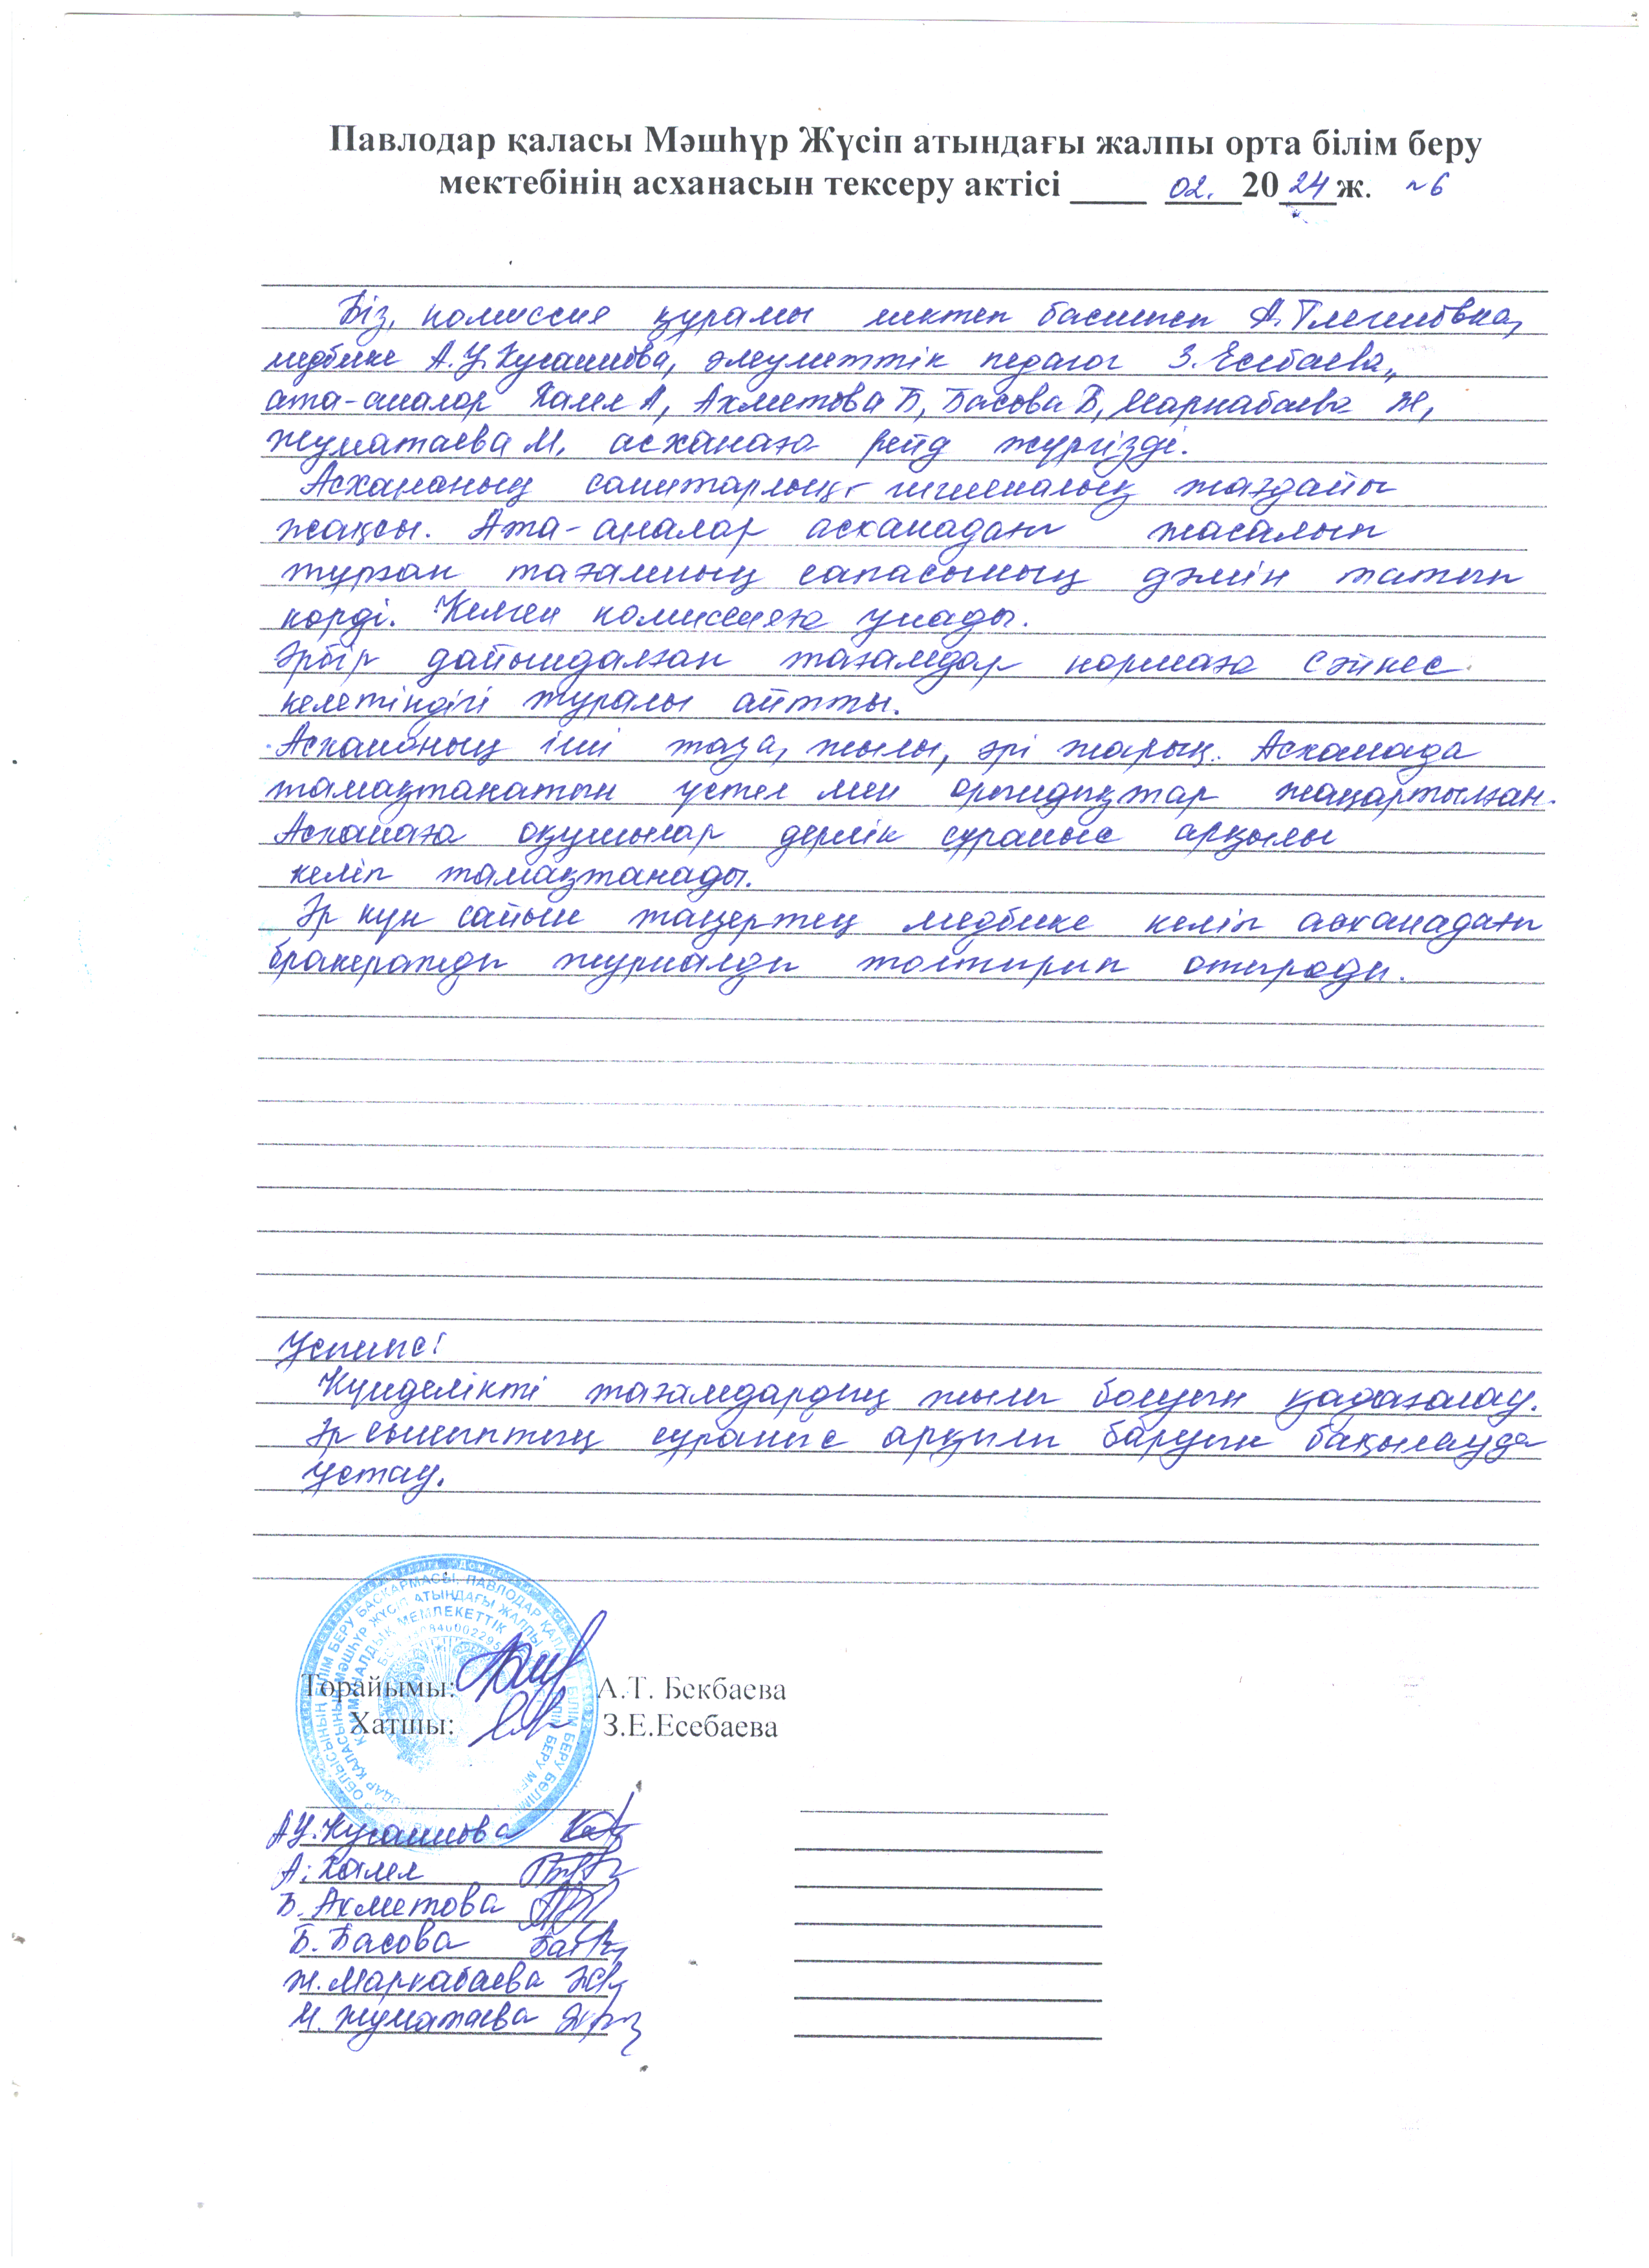 Павлодар қаласы Мәшһүр Жүсіп атындағы жалпы орта білім беру
мектебінің асханасын тексеру актісі ____ 02. 2024ж. ~6
Біз, комиссия құрамы мектеп басшысы А. Тлегеновна,
медбике А.У. әлеуметтік педагог З. Есебаева,
ата-аналар Халел А, Ахметова Б, Басова Б, Маркабаева Ж,
Жуматаева М. асханаға рейд жүргізді.
Асхананың санитарлық-гигиеналық жағдайы
жақсы. Ата-аналар асханадағы жасалып
тұрған тағамның сапасының дәмін татып
көрді. Келген комиссияға ұнады.
Әрбір дайындалған тағамдар нормаға сәйкес
келетіндігі туралы айтты.
Асхананың іші таза, жылы, әрі жарық. Асханада
тамақтанатын үстел мен орындықтар жаңартылған.
Асханаға оқушылар дерлік сұраныс арқылы
келіп тамақтанады.
Әр күн сайын таңертең медбике келіп асханадағы
бракераждың журналды толтырып отырады.
Ұсыныс:
Күнделікті тағамдардың жылы болуын қадағалау.
Әр сыныптың сұраныс арқылы баруын бақылауда
ұстау.
Төрайымы: А.Т. Бекбаева
Хатшы: З.Е.Есебаева
А.У.
А. Халел
Б. Ахметова
Б. Басова
Ж. Маркабаева
М. Жуматаева